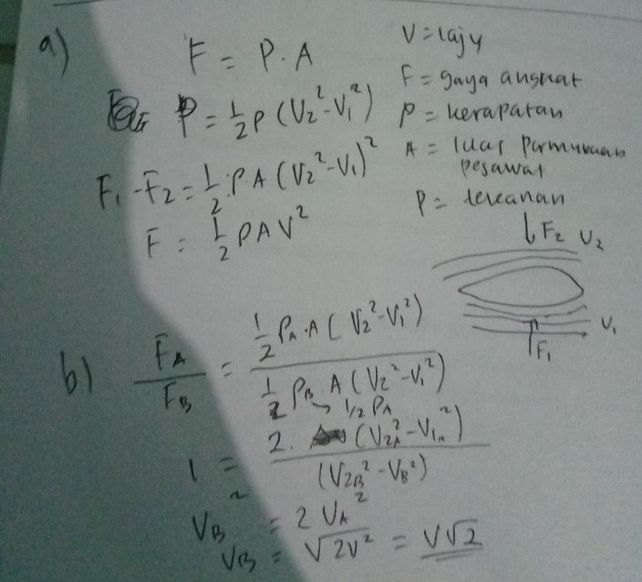 a)
F = P . A
P = 1/2 ρ (V₂² - V₁²)
F₁ - F₂ = 1/2 . ρ A (V₂² - V₁)²
F = 1/2 ρ A V²
V = laju
F = gaya angkat
ρ = kerapatan
A = luas permukaan
pesawat
P = tekanan
F₂ V₂
V₁
F₁
b) F_A / F_B = 1/2 ρ_A . A ( V₂² - V₁² ) / 1/2 ρ_B . A ( V₂² - V₁² )
→ 1/2 ρ_A
1 = 2 . (V₂A² - V₁A²) / (V₂B² - V_B²)
V_B² = 2 V_A²
V_B = √2V² = V√2